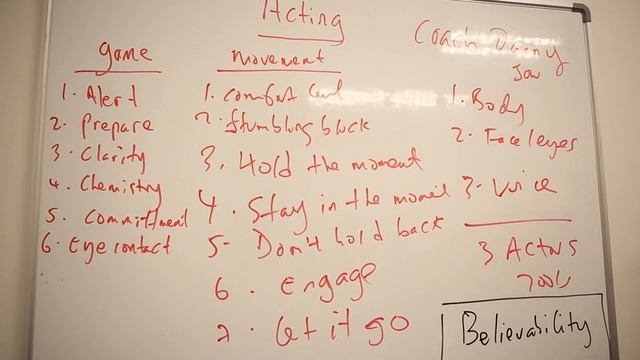 Acting
game
1. Alert
2. Prepare
3. Clarity
4. Chemistry
5. Commitment
6. Eye contact
movement
1. Comfort
2. Stumbling block
3. Hold the moment
4. Stay in the
5- Don't hold back
6. Engage
7. Let it go
Coach
1. Body
2. Face/eyes
3- Voice
3 Actors
Tools
Believability